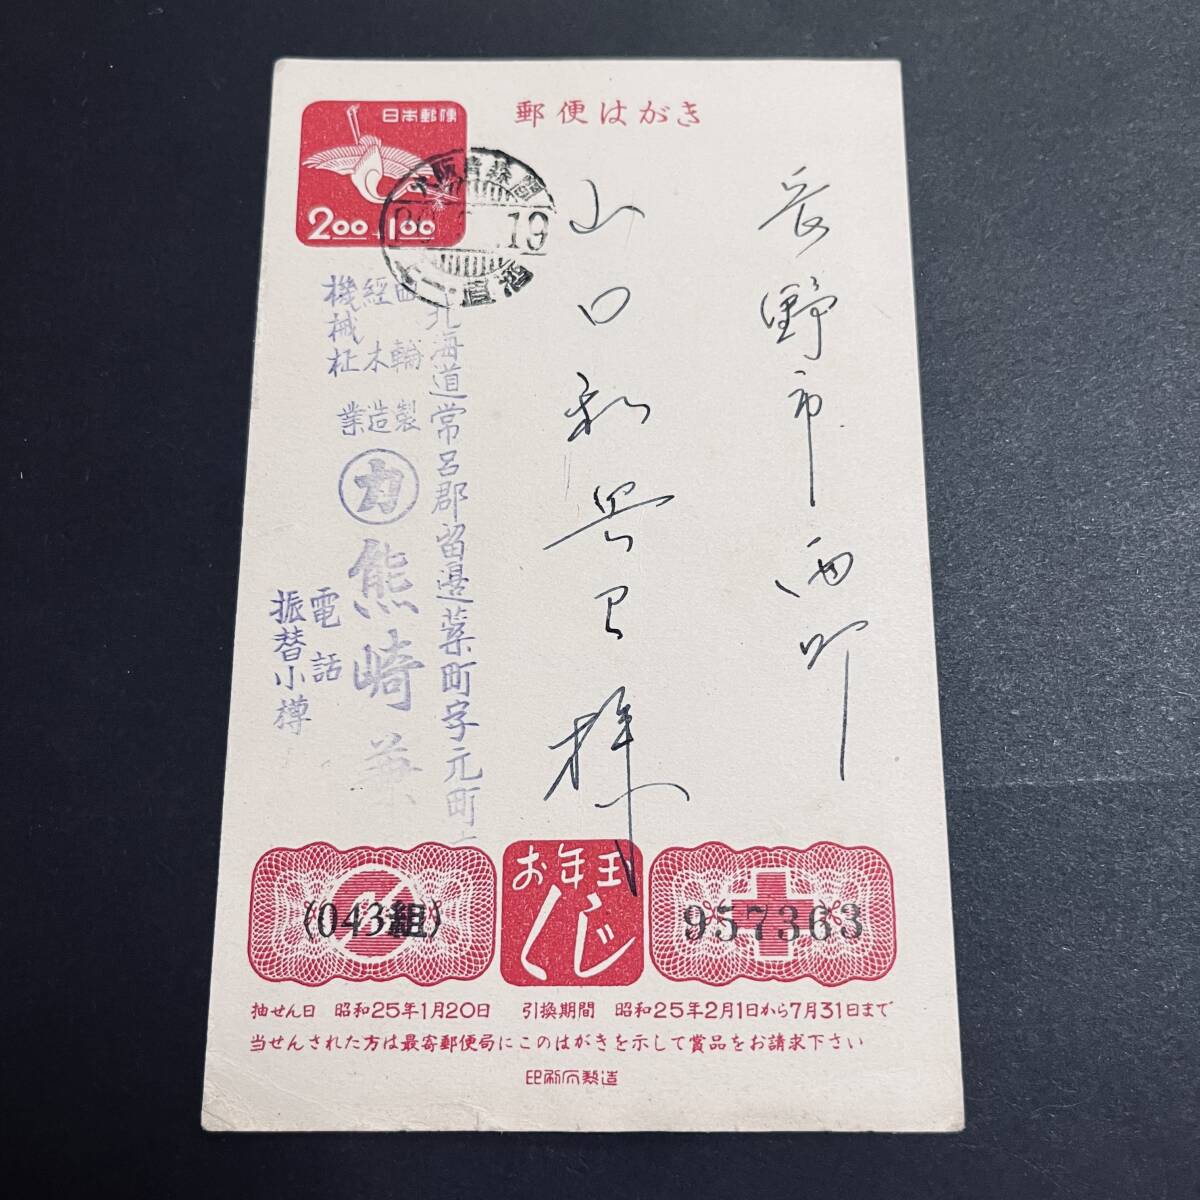 郵便はがき
日本郵便
2.00+1.00
大阪青森間
19
長野市西町
山口和
様
北海道常呂郡留辺蘂町字元町
曲輪製
経木造
機械柾業
力
熊崎
電話
振替小樽
《043組》
お年玉
くじ
957363
抽せん日 昭和25年1月20日 引換期間 昭和25年2月1日から7月31日まで
当せんされた方は最寄郵便局にこのはがきを示して賞品をお請求下さい
印刷局製造